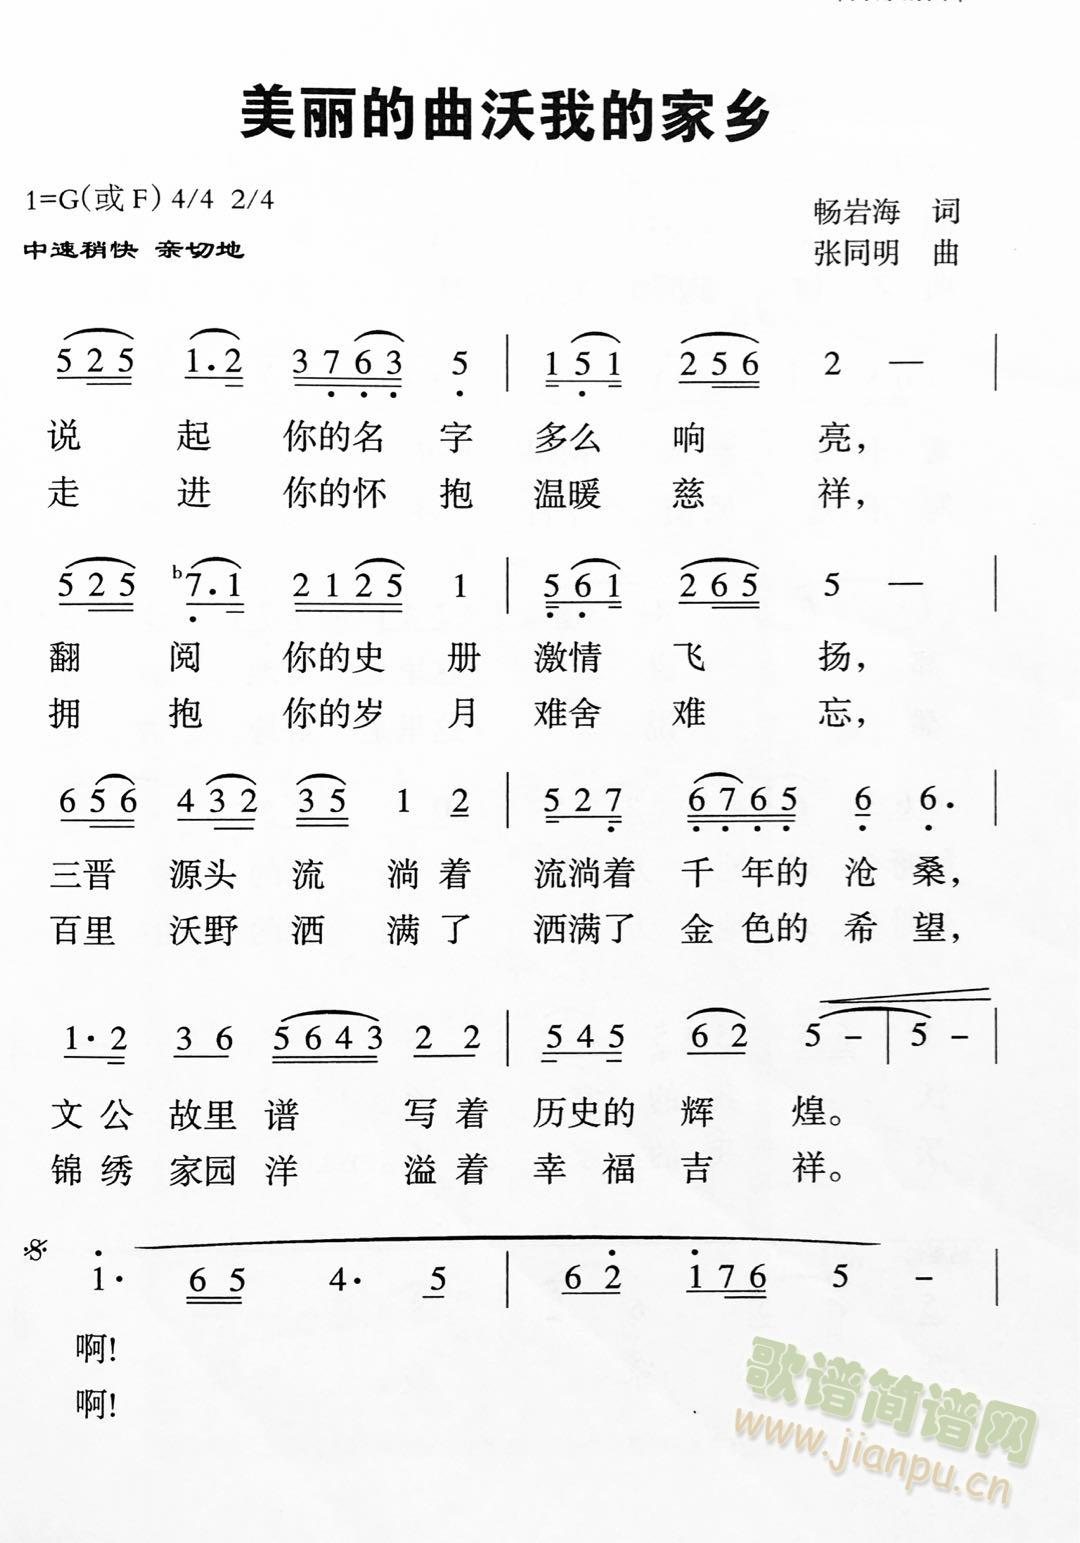 美丽的曲沃我的家乡
1=G(或F) 4/4 2/4
畅岩海 词
中速稍快 亲切地
张同明 曲
5 2 5 1·2 3 7 6 3 5 | 1 5 1 2 5 6 2 — |
说 起 你的名 字 多么 响 亮,
走 进 你的怀 抱 温暖 慈 祥,
5 2 5 ♭7·1 2 1 2 5 1 | 5 6 1 2 6 5 5 — |
翻 阅 你的史 册 激情 飞 扬,
拥 抱 你的岁 月 难舍 难 忘,
6 5 6 4 3 2 3 5 1 2 | 5 2 7 6 7 6 5 6 6· |
三晋 源头 流 淌 着 流淌着 千 年的 沧 桑,
百里 沃野 洒 满 了 洒满了 金 色的 希 望,
1·2 3 6 5 6 4 3 2 2 | 5 4 5 6 2 5 – | 5 – |
文 公 故里 谱 写 着 历史的 辉 煌。
锦 绣 家园 洋 溢 着 幸 福 吉 祥。
1· 6 5 4· 5 | 6 2 1 7 6 5 – |
啊!
啊!
歌谱简谱网
www.jianpu.cn